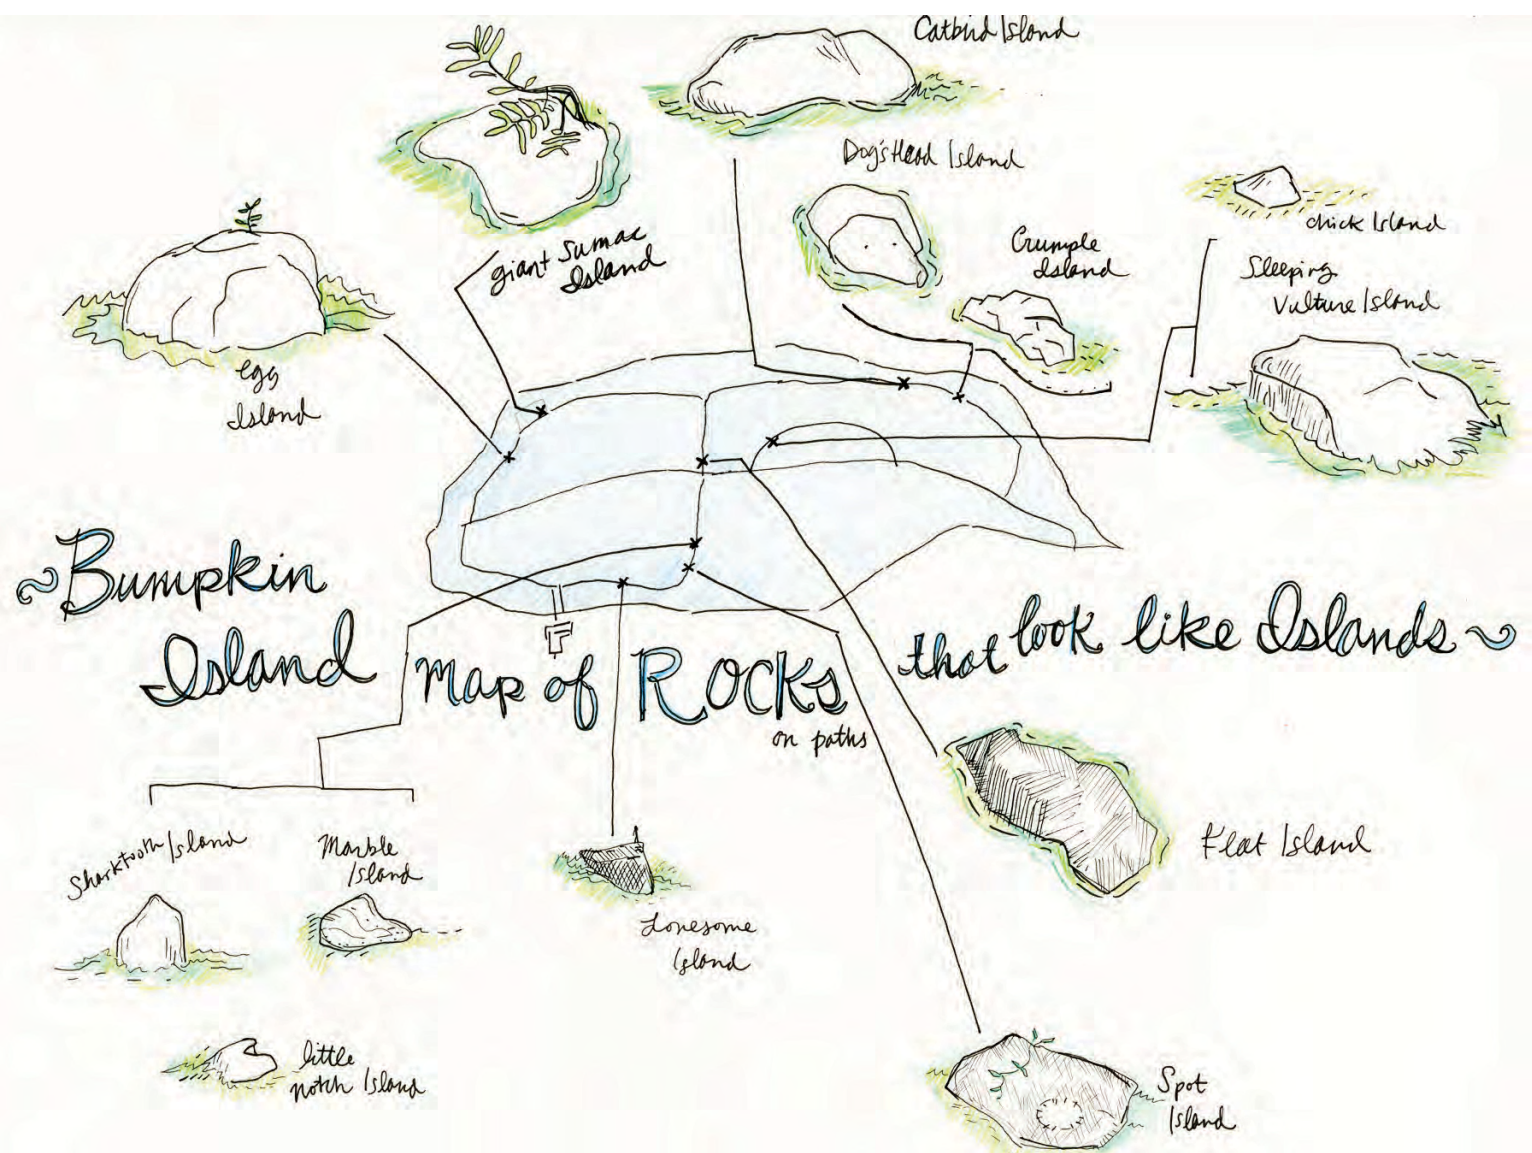 Catbird Island
Dog's Head Island
chick Island
giant Sumac
Island
Crumple
Island
Sleeping
Vulture Island
egg
Island
~Bumpkin
Island map of Rocks
on paths
that look like Islands~
Sharktooth Island
Marble
Island
Flat Island
Lonesome
Island
little
notch Island
Spot
Island